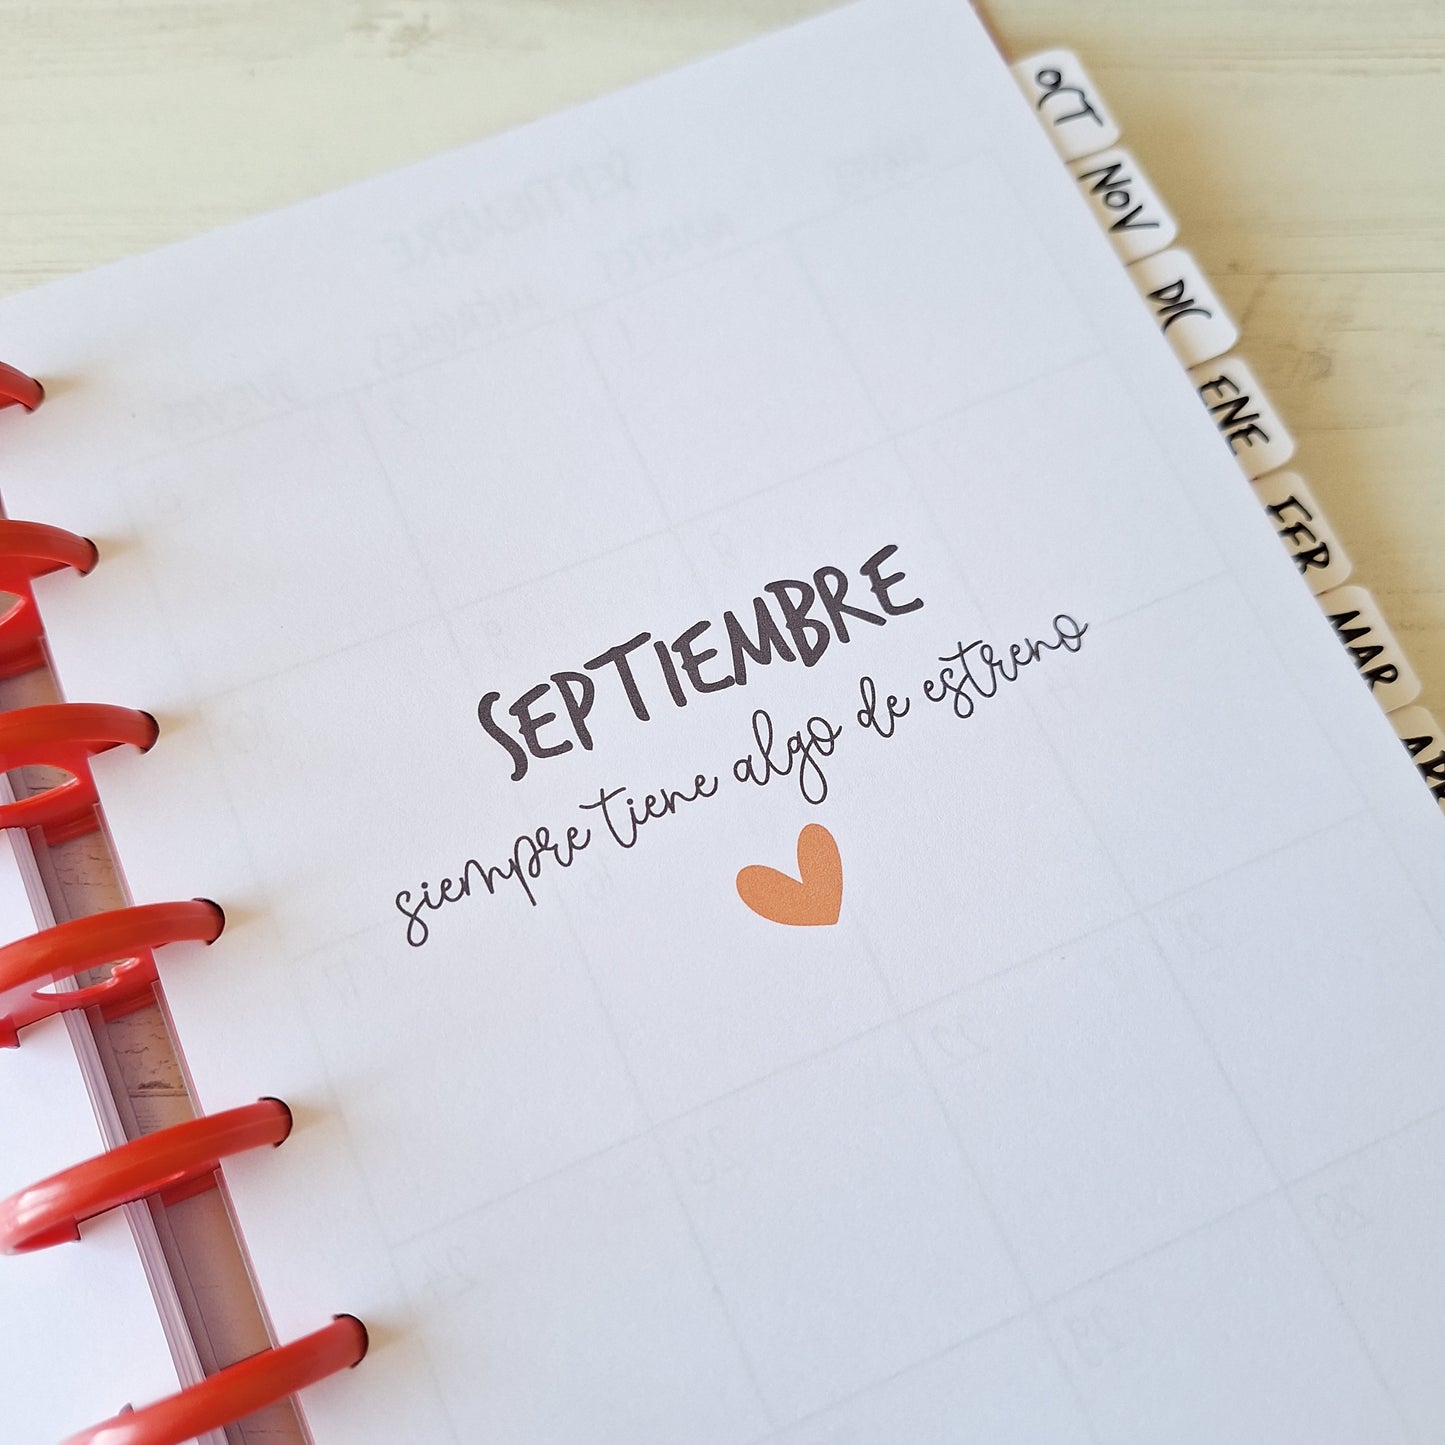 SEPTIEMBRE
siempre tiene algo de estreno
OCT
NOV
DIC
ENE
FEB
MAR
ABR